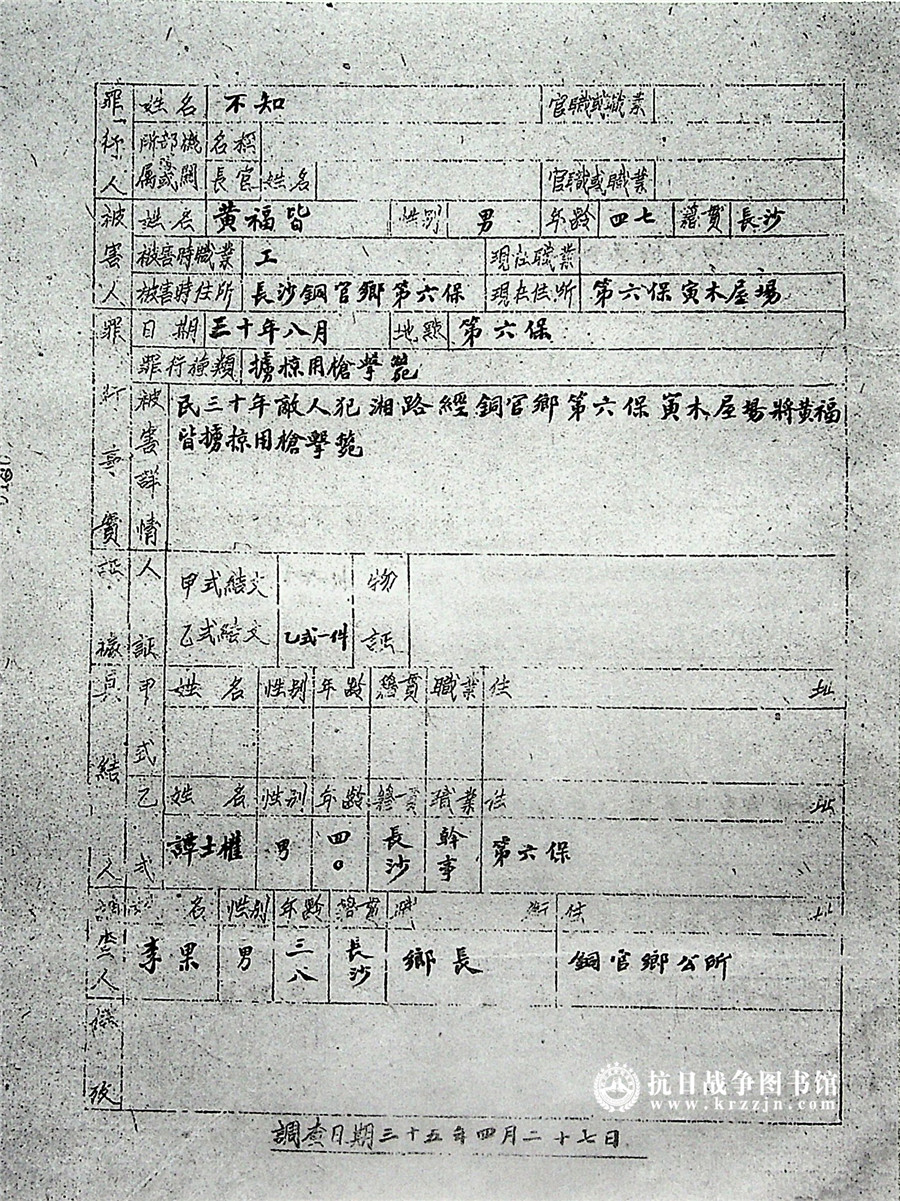 罪行人 姓名 不知 官職或職業
所部機 名稱
屬或關 長官姓名 官職或職業
被害人 姓名 黃福皆 性別 男 年齡 四七 籍貫 長沙
被害時職業 工 現在職業
被害時住所 長沙銅官鄉第六保 現在住所 第六保寅木屋場
罪行事實 日期 三十年八月 地點 第六保
罪行種類 擄掠用槍擊斃
被害詳情 民三十年敵人犯湘路經銅官鄉第六保寅木屋場將黃福
皆擄掠用槍擊斃
証據 人証 甲式結文 物証
乙式結文 乙式一件
具結人 甲式 姓名 性別 年齡 籍貫 職業 住址
乙式 姓名 性別 年齡 籍貫 職業 住址
譚士權 男 四〇 長沙 幹事 第六保
調查人 姓名 性別 年齡 籍貫 職銜 住址
李果 男 三八 長沙 鄉長 銅官鄉公所
備攷
抗日战争图书馆
www.krzzjn.com
調查日期三十五年四月二十七日